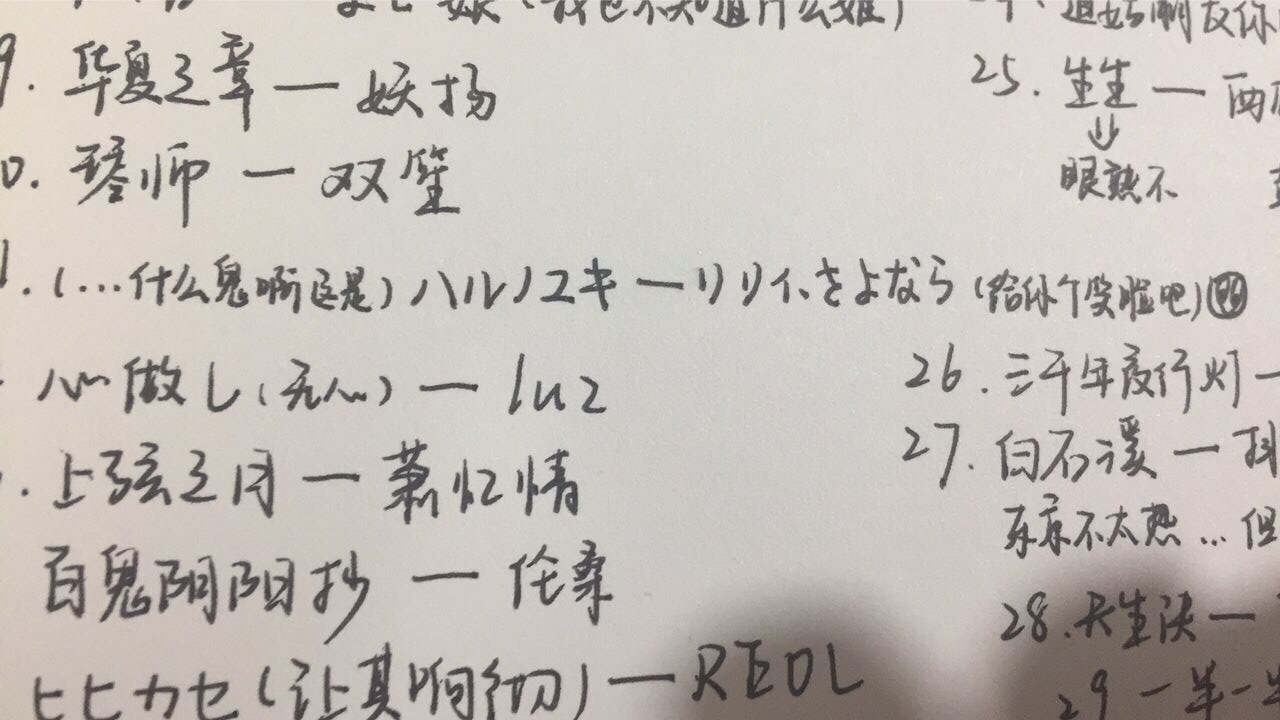 娘(我也不知道什么娘)
9. 华夏之章 — 妖扬
0. 琴师 — 双笙
1. (...什么鬼啊这是) ハルノユキ — リリィ、さよなら (给你个笑脸吧)
心做し(无心) — luz
. 上弦之月 — 萧忆情
百鬼阴阳抄 — 伦桑
ヒビカセ(让其响彻) — REOL
25. 生生 — 西
⇓
眼熟不
26. 三千年夜行灯 —
27. 白石溪 — 抖
东京不太热...但
28. 天生决 —
29 一半一半